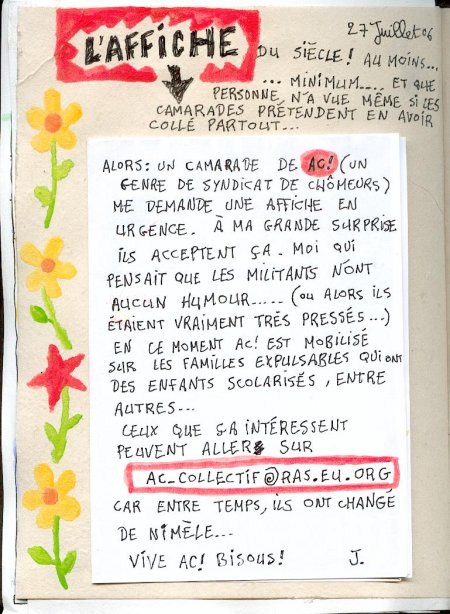 27 Juillet 06
L'AFFICHE DU SIÈCLE! AU MOINS...
... MINIMUM.... ET QUE
PERSONNE N'A VUE MÊME SI LES
CAMARADES PRÉTENDENT EN AVOIR
COLLÉ PARTOUT...
ALORS: UN CAMARADE DE AC! (UN
GENRE DE SYNDICAT DE CHÔMEURS)
ME DEMANDE UNE AFFICHE EN
URGENCE. À MA GRANDE SURPRISE
ILS ACCEPTENT ÇA. MOI QUI
PENSAIT QUE LES MILITANTS N'ONT
AUCUN HUMOUR..... (OU ALORS ILS
ÉTAIENT VRAIMENT TRÈS PRESSÉS...)
EN CE MOMENT AC! EST MOBILISÉ
SUR LES FAMILLES EXPULSABLES QUI ONT
DES ENFANTS SCOLARISÉS, ENTRE
AUTRES...
CEUX QUE ÇA INTÉRESSENT
PEUVENT ALLER SUR
AC_COLLECTIF@RAS.EU.ORG
CAR ENTRE TEMPS, ILS ONT CHANGÉ
DE NIMÈLE...
VIVE AC! BISOUS! J.